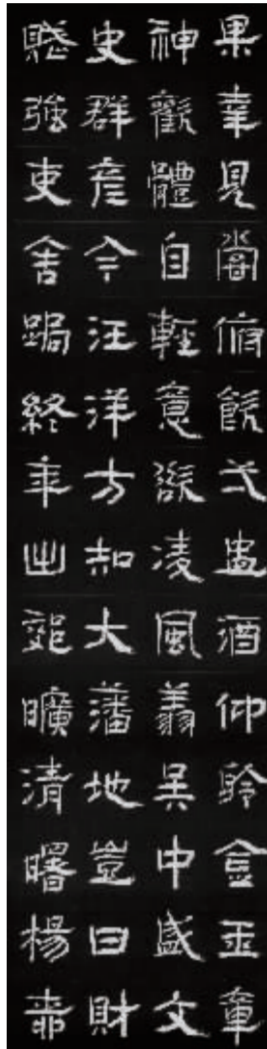 果幸見嘗俯飲弌盃酒仰聆金玉章
神歡體自輕意欲凌風翔吳中盛文
史群彥今汪洋方知大藩地豈曰財
賦強吏舍跼終年出郊曠清曙楊柳